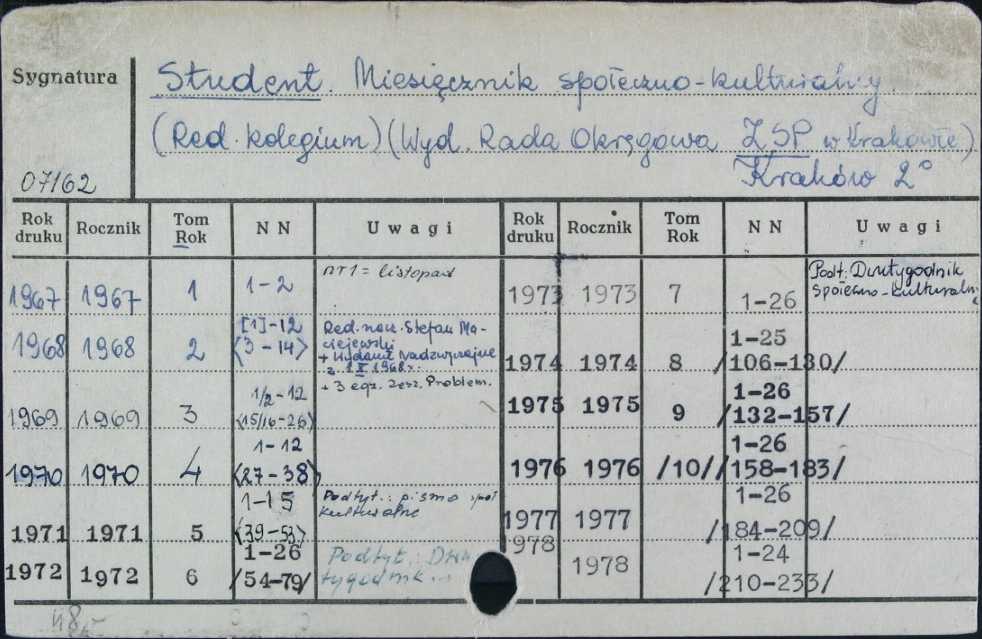 Sygnatura
Student. Miesięcznik społeczno-kulturalny
(Red. kolegium) (Wyd. Rada Okręgowa ZSP w Krakowie)
07162 Kraków 2°
Rok druku Rocznik Tom Rok N N Uwagi Rok druku Rocznik Tom Rok N N Uwagi
1967 1967 1 1-2 nr 1 = listopad
1968 1968 2 [1]-12 <3-14> Red. nacz. Stefan Maciejewski
+ Wydanie Nadzwyczajne
z 1 X 1968 r.
+ 3 egz. zesz. Problem.
1969 1969 3 1/2-12 <15/16-26>
1970 1970 4 1-12 <27-38>
1971 1971 5 1-15 <39-53> Podtyt.: pismo społ
kulturalne
1972 1972 6 1-26 /54-79/ Podtyt.: Dwutygodnik...
1973 1973 7 1-26 Podt. Dwutygodnik
społeczno-kulturalny
1974 1974 8 1-25 /106-130/
1975 1975 9 1-26 /132-157/
1976 1976 /10/ 1-26 /158-183/
1977 1977 1-26 /184-209/
1978 1978 1-24 /210-233/